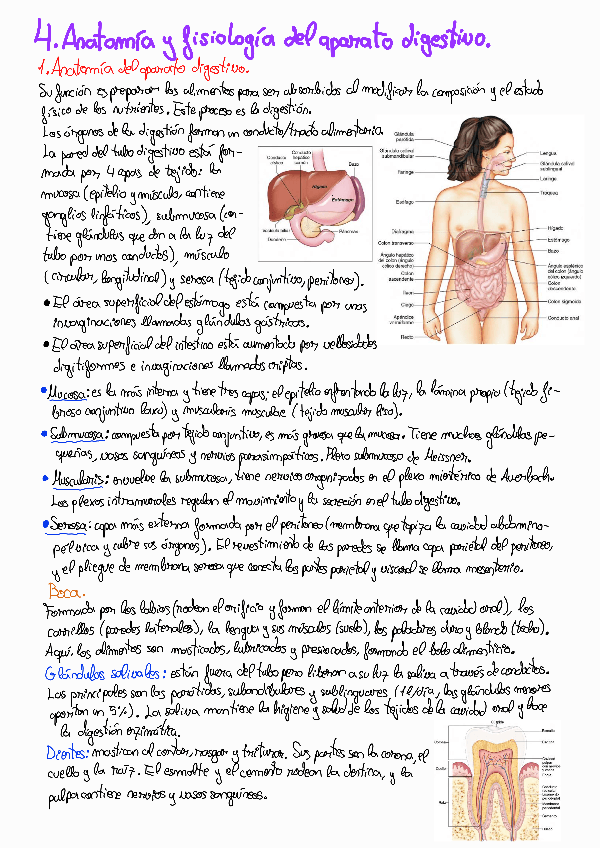 4. Anatomía y fisiología del aparato digestivo.
1. Anatomía del aparato digestivo.
Su función es preparar los alimentos para ser absorbidos al modificar la composición y el estado
físico de los nutrientes. Este proceso es la digestión.
Los órganos de la digestión forman un conducto/tracto alimentaria.
La pared del tubo digestivo está for-
mada por 4 capas de tejido: la
mucosa (epitelio y músculo, contiene
ganglios linfáticos), submucosa (con-
tiene glándulas que dan a la luz del
tubo por unos conductos), músculo
(circular, longitudinal) y serosa (tejido conjuntivo, peritoneo).
• El área superficial del estómago está compuesta por unas
invaginaciones llamadas glándulas gástricas.
• El área superficial del intestino está aumentado por vellosidades
digitiformes e invaginaciones llamadas criptas.
Conducto cístico
Conducto hepático común
Bazo
Hígado
Estómago
Páncreas
Duodeno
Glándula parótida
Glándula salival submandibular
Faringe
Esófago
Diafragma
Colon transverso
Ángulo hepático del colon (ángulo cólico derecho)
Colon ascendente
Íleon
Ciego
Apéndice vermiforme
Recto
Lengua
Glándula salival sublingual
Laringe
Tráquea
Hígado
Estómago
Bazo
Ángulo esplénico del colon (ángulo cólico izquierdo)
Colon descendente
Colon sigmoide
Conducto anal
• Mucosa: es la más interna y tiene tres capas: el epitelio enfrentando la luz, la lámina propia (tejido fi-
broso conjuntivo laxo) y muscularis mucosae (tejido muscular liso).
• Submucosa: compuesta por tejido conjuntivo, es más gruesa que la mucosa. Tiene muchas glándulas pe-
queñas, vasos sanguíneos y nervios parasimpáticos. Plexo submucoso de Meissner.
• Muscularis: envuelve la submucosa, tiene nervios organizados en el plexo mientérico de Auerbach.
Los plexos intramurales regulan el movimiento y la secreción en el tubo digestivo.
• Serosa: capa más externa formada por el peritoneo (membrana que tapiza la cavidad abdomino-
pélvica y cubre sus órganos). El revestimiento de las paredes se llama capa parietal del peritoneo,
y el pliegue de membrana serosa que conecta las partes parietal y visceral se llama mesenterio.
Boca.
Formada por los labios (rodean el orificio y forman el límite anterior de la cavidad oral), los
carrillos (paredes laterales), la lengua y sus músculos (suelo), los paladares duro y blando (techo).
Aquí, los alimentos son masticados, lubricados y presionados, formando el bolo alimenticio.
Glándulas salivales: están fuera del tubo pero liberan a su luz la saliva a través de conductos.
Las principales son las parótidas, submandibulares y sublinguares (1l/día, las glándulas menores
aportan un 5%). La saliva mantiene la higiene y salud de los tejidos de la cavidad oral y hace
la digestión enzimática.
Dientes: mastican al cortar, rasgar y triturar. Sus partes son la corona, el
cuello y la raíz. El esmalte y el cemento rodean la dentina, y la
pulpa contiene nervios y vasos sanguíneos.
Corona
Cuello
Raíz
Esmalte
Dentina
Encía
Cemento
Hueso